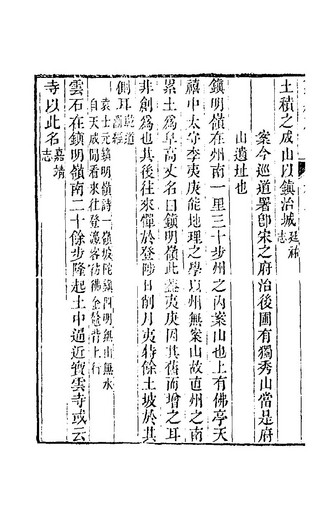 土積之成山以鎮治城延祐志
案今巡道署卽宋之府治後圃有獨秀山當是府
山遺址也
鎮明嶺在州南一里三十步州之內案山也上有佛亭天
禧中太守李夷庚能地理之學以州無案山故直州之南
累土爲阜高丈名曰鎮明嶺此蓋夷庚因其舊而增之耳
非創爲也其後往來憚於登陟日削月夷特餘土坡於其
側耳至正續志
袁士元鎮明嶺詩一嶺坡陀鎮四明無山無水
自天成閒看來往登臨客彷彿金鼇背上行
雲石在鎮明嶺南二十餘步隆起土中逼近寶雲寺或云
寺以此名嘉靖志